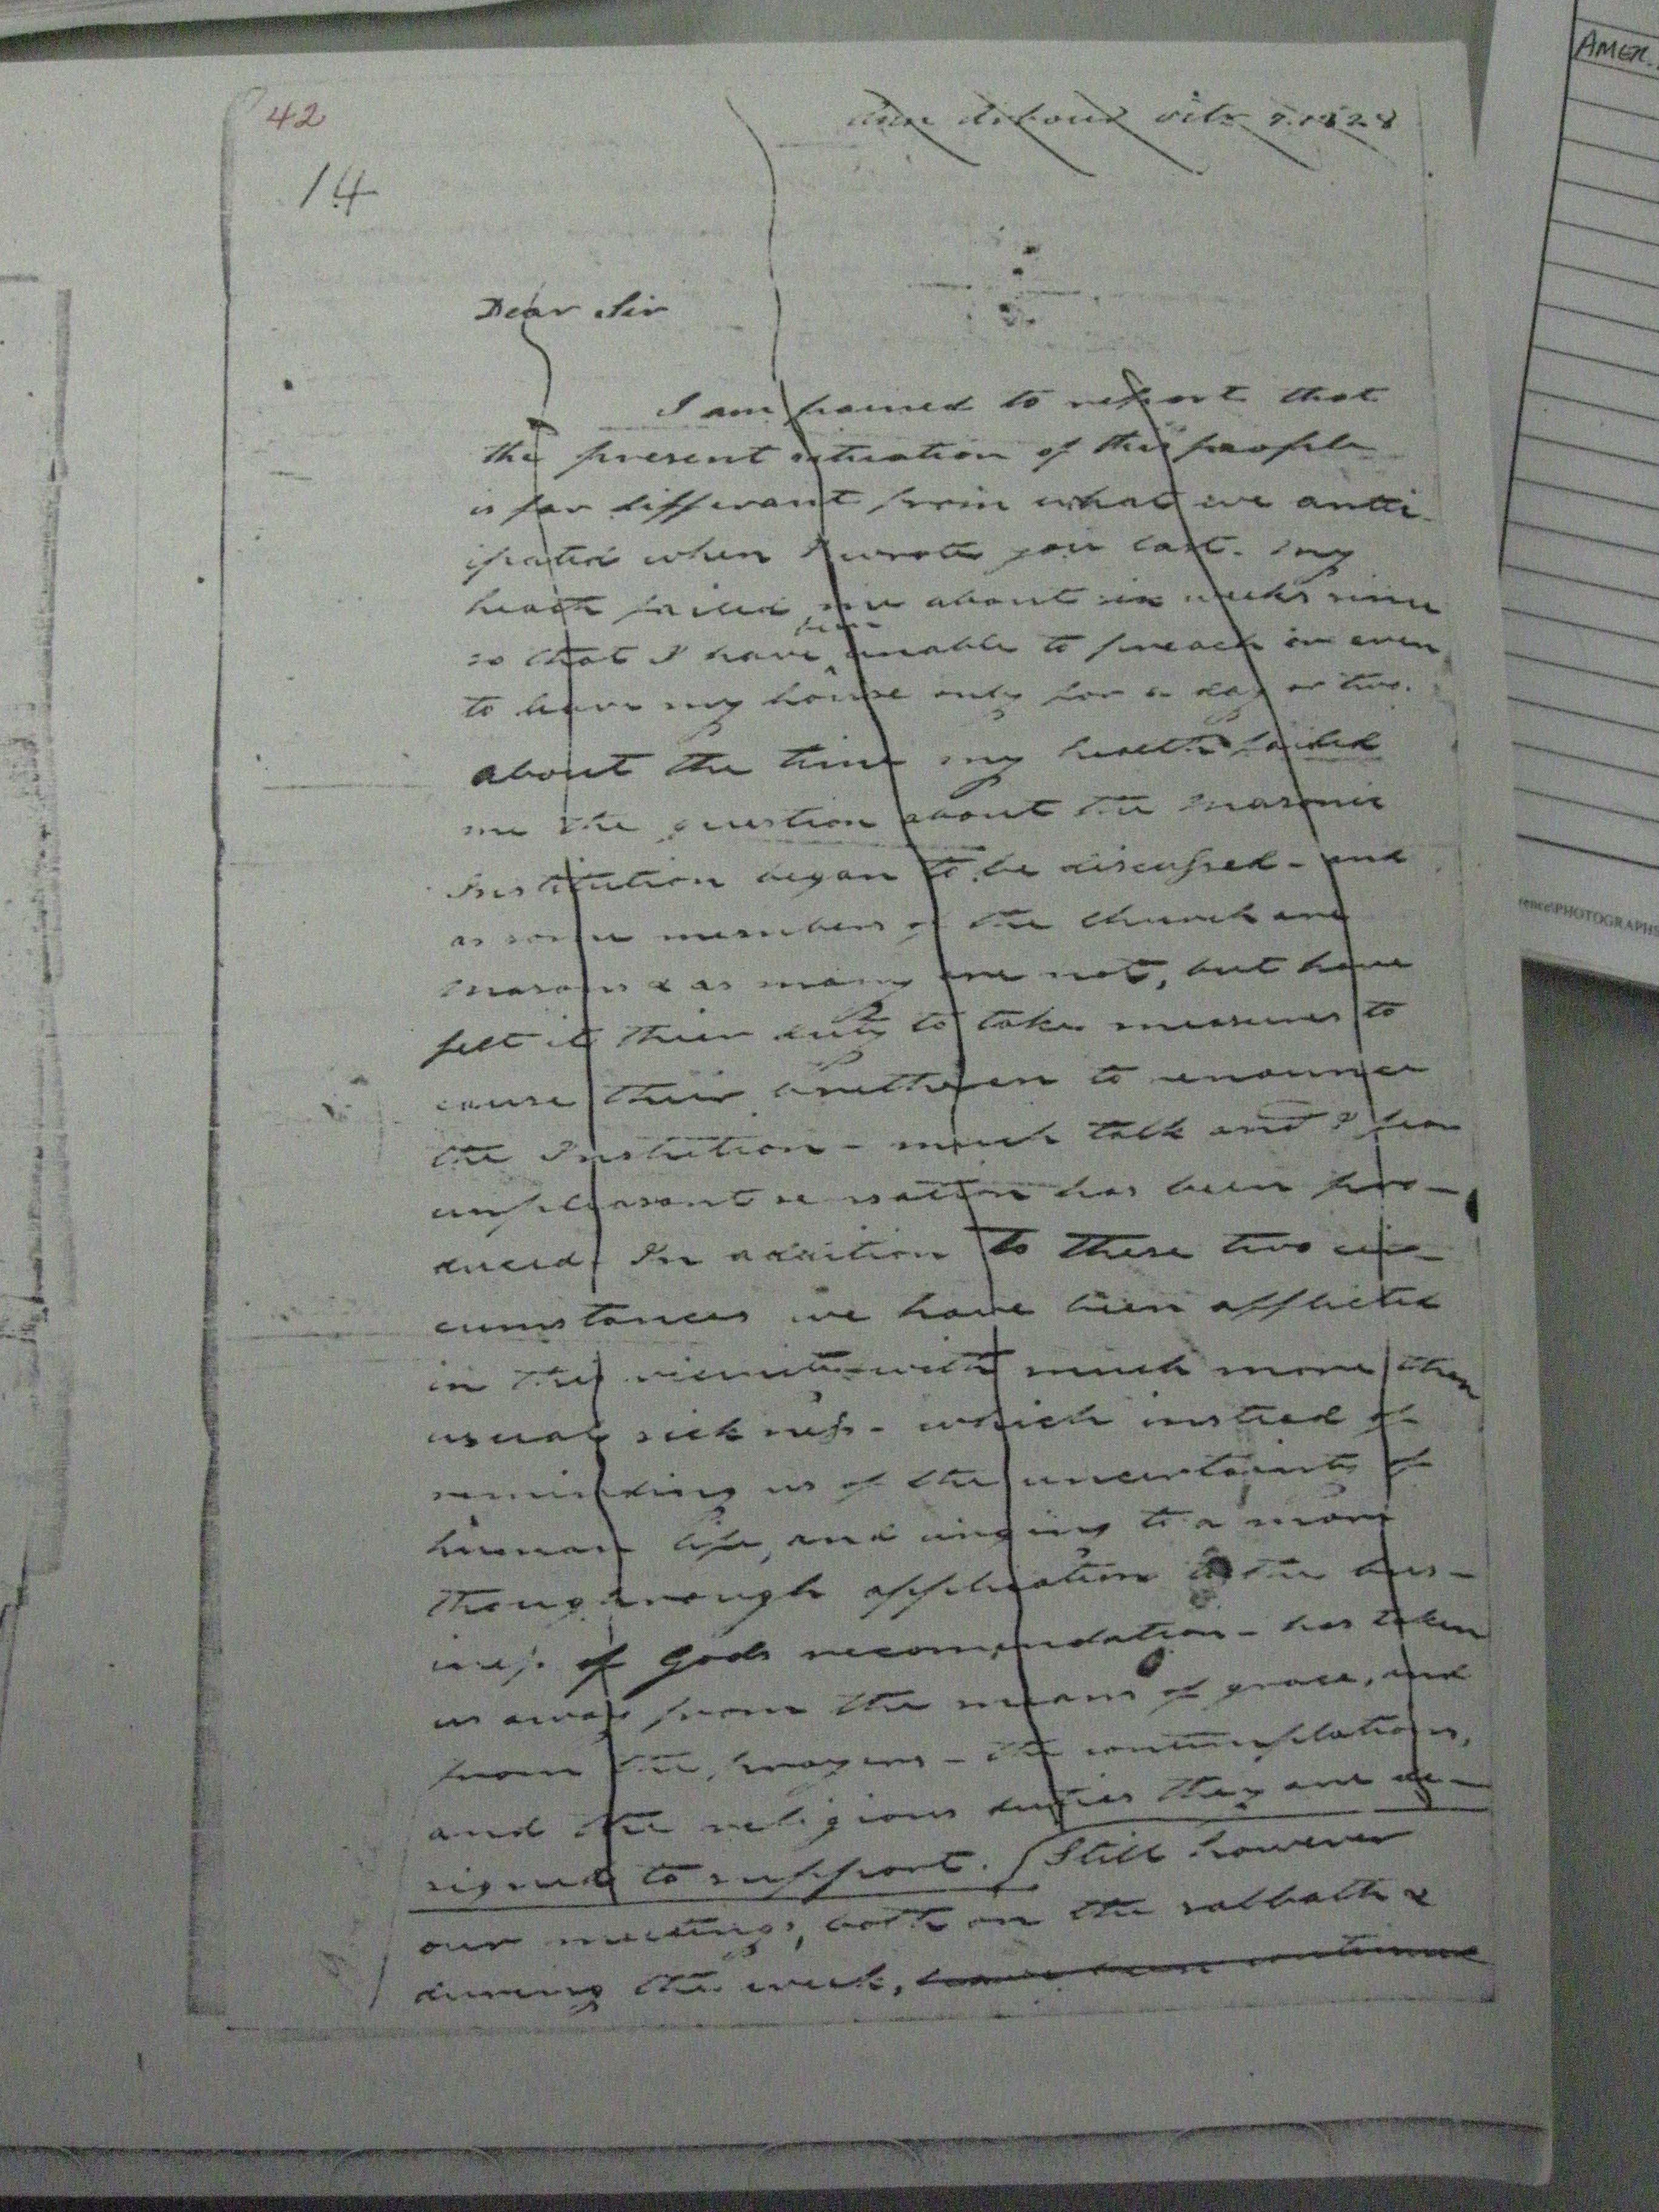 42
AMER.
14
Ann Arbour Octr 7. 1828
Dear Sir
I am pained to report that
the present situation of this people
is far differant from what we antic-
ipated when I wrote you last. My
health failed me about six weeks since
so that I have been unable to preach or even
to leave my house only for a day or two.
about the time my health failed
me the question about the Masonic
Institution began to be discussed - and
as some members of the church are
masons & as many are not, but have
felt it their duty to take measures to
cause their brethren to renounce
the Institution - much talk and I fear
unpleasant sensation has been pro-
duced. In addition to these two cir-
cumstances we have been afflicted
in this vicinity with much more than
usual sickness - which instead of
reminding us of the uncertainty of
human life, and urging to a more
thorough application to the bus-
iness of Gods recomendation - has taken
us away from the means of grace, and
from the prayers - the contemplations,
and the religious duties they are de-
signed to support. Still however
our meetings, both on the sabbath &
during the week, have been continued
rence\PHOTOGRAPHS